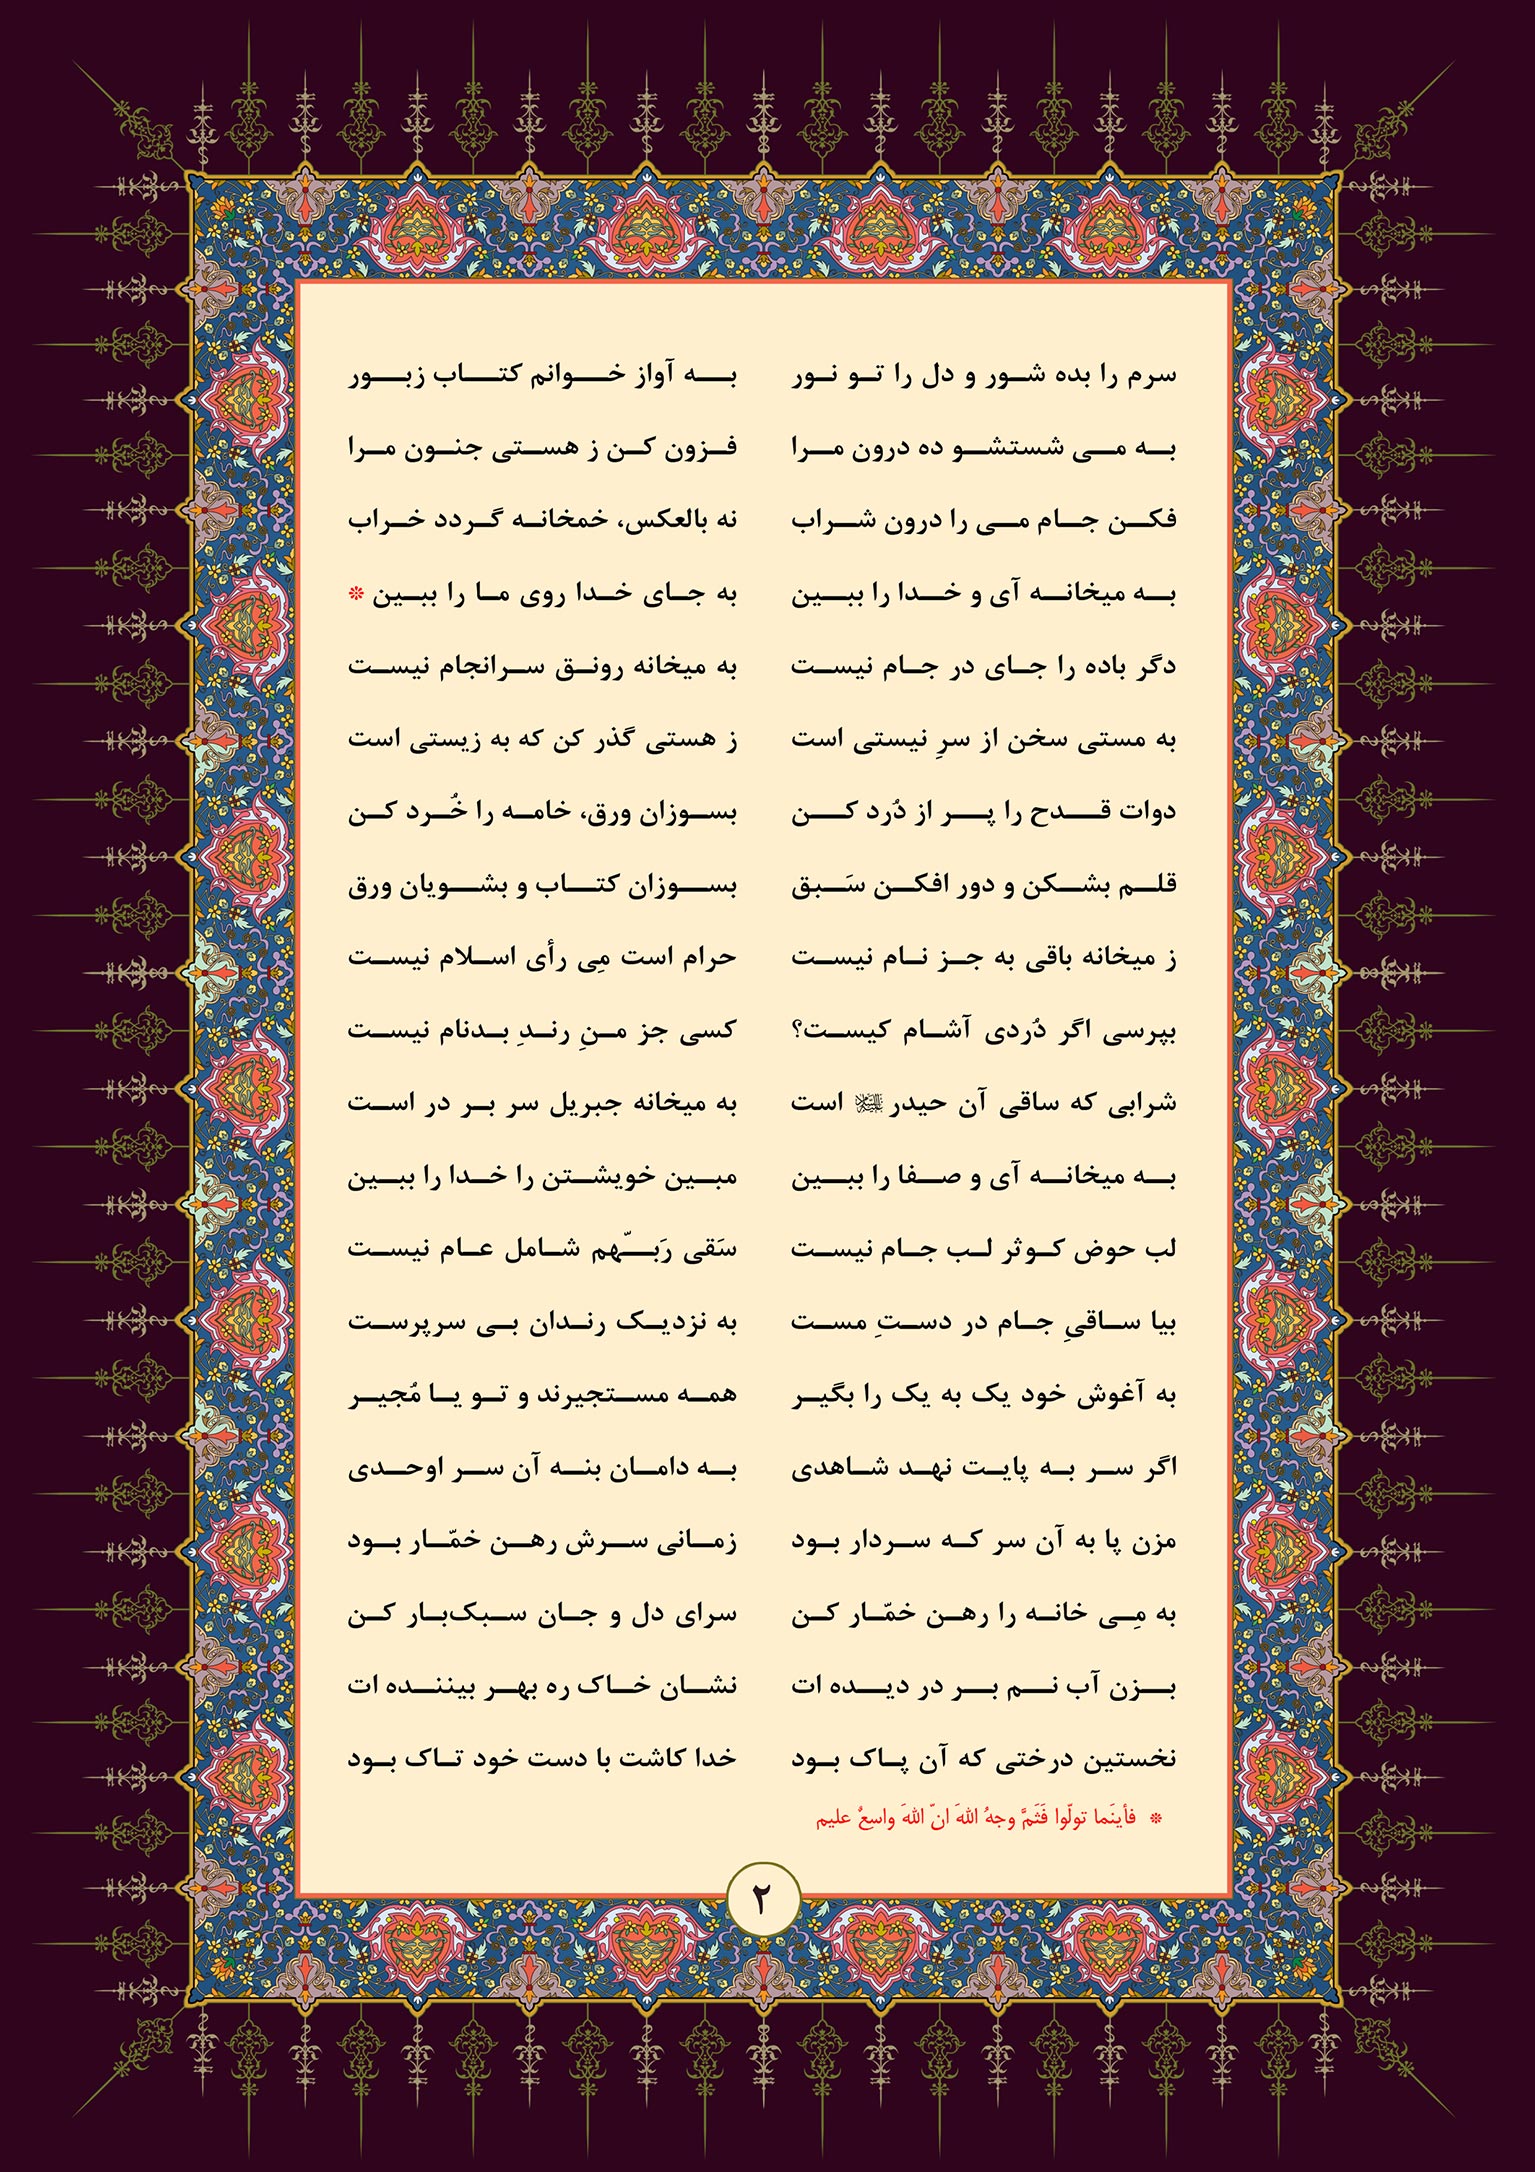 سرم را بده شور و دل را تو نور به آواز خوانم کتاب زبور
به می شستشو ده درون مرا فزون کن ز هستی جنون مرا
فکن جام می را درون شراب نه بالعکس، خمخانه گردد خراب
به میخانه آی و خدا را ببین به جای خدا روی ما را ببین *
دگر باده را جای در جام نیست به میخانه رونق سرانجام نیست
به مستی سخن از سرِ نیستی است ز هستی گذر کن که به زیستی است
دوات قدح را پر از دُرد کن بسوزان ورق، خامه را خُرد کن
قلم بشکن و دور افکن سَبق بسوزان کتاب و بشویان ورق
ز میخانه باقی به جز نام نیست حرام است مِی رأی اسلام نیست
بپرسی اگر دُردی آشام کیست؟ کسی جز منِ رندِ بدنام نیست
شرابی که ساقی آن حیدر علیه‌السلام است به میخانه جبریل سر بر در است
به میخانه آی و صفا را ببین مبین خویشتن را خدا را ببین
لب حوض کوثر لب جام نیست سَقی رَبّهم شامل عام نیست
بیا ساقیِ جام در دستِ مست به نزدیک رندان بی سرپرست
به آغوش خود یک به یک را بگیر همه مستجیرند و تو یا مُجیر
اگر سر به پایت نهد شاهدی به دامان بنه آن سر اوحدی
مزن پا به آن سر که سردار بود زمانی سرش رهن خمّار بود
به مِی خانه را رهن خمّار کن سرای دل و جان سبک‌بار کن
بزن آب نم بر در دیده ات نشان خاک ره بهر بیننده ات
نخستین درختی که آن پاک بود خدا کاشت با دست خود تاک بود
* فأینَما تولّوا فَثَمَّ وجهُ اللهَ انّ اللهَ واسعٌ علیم
۲